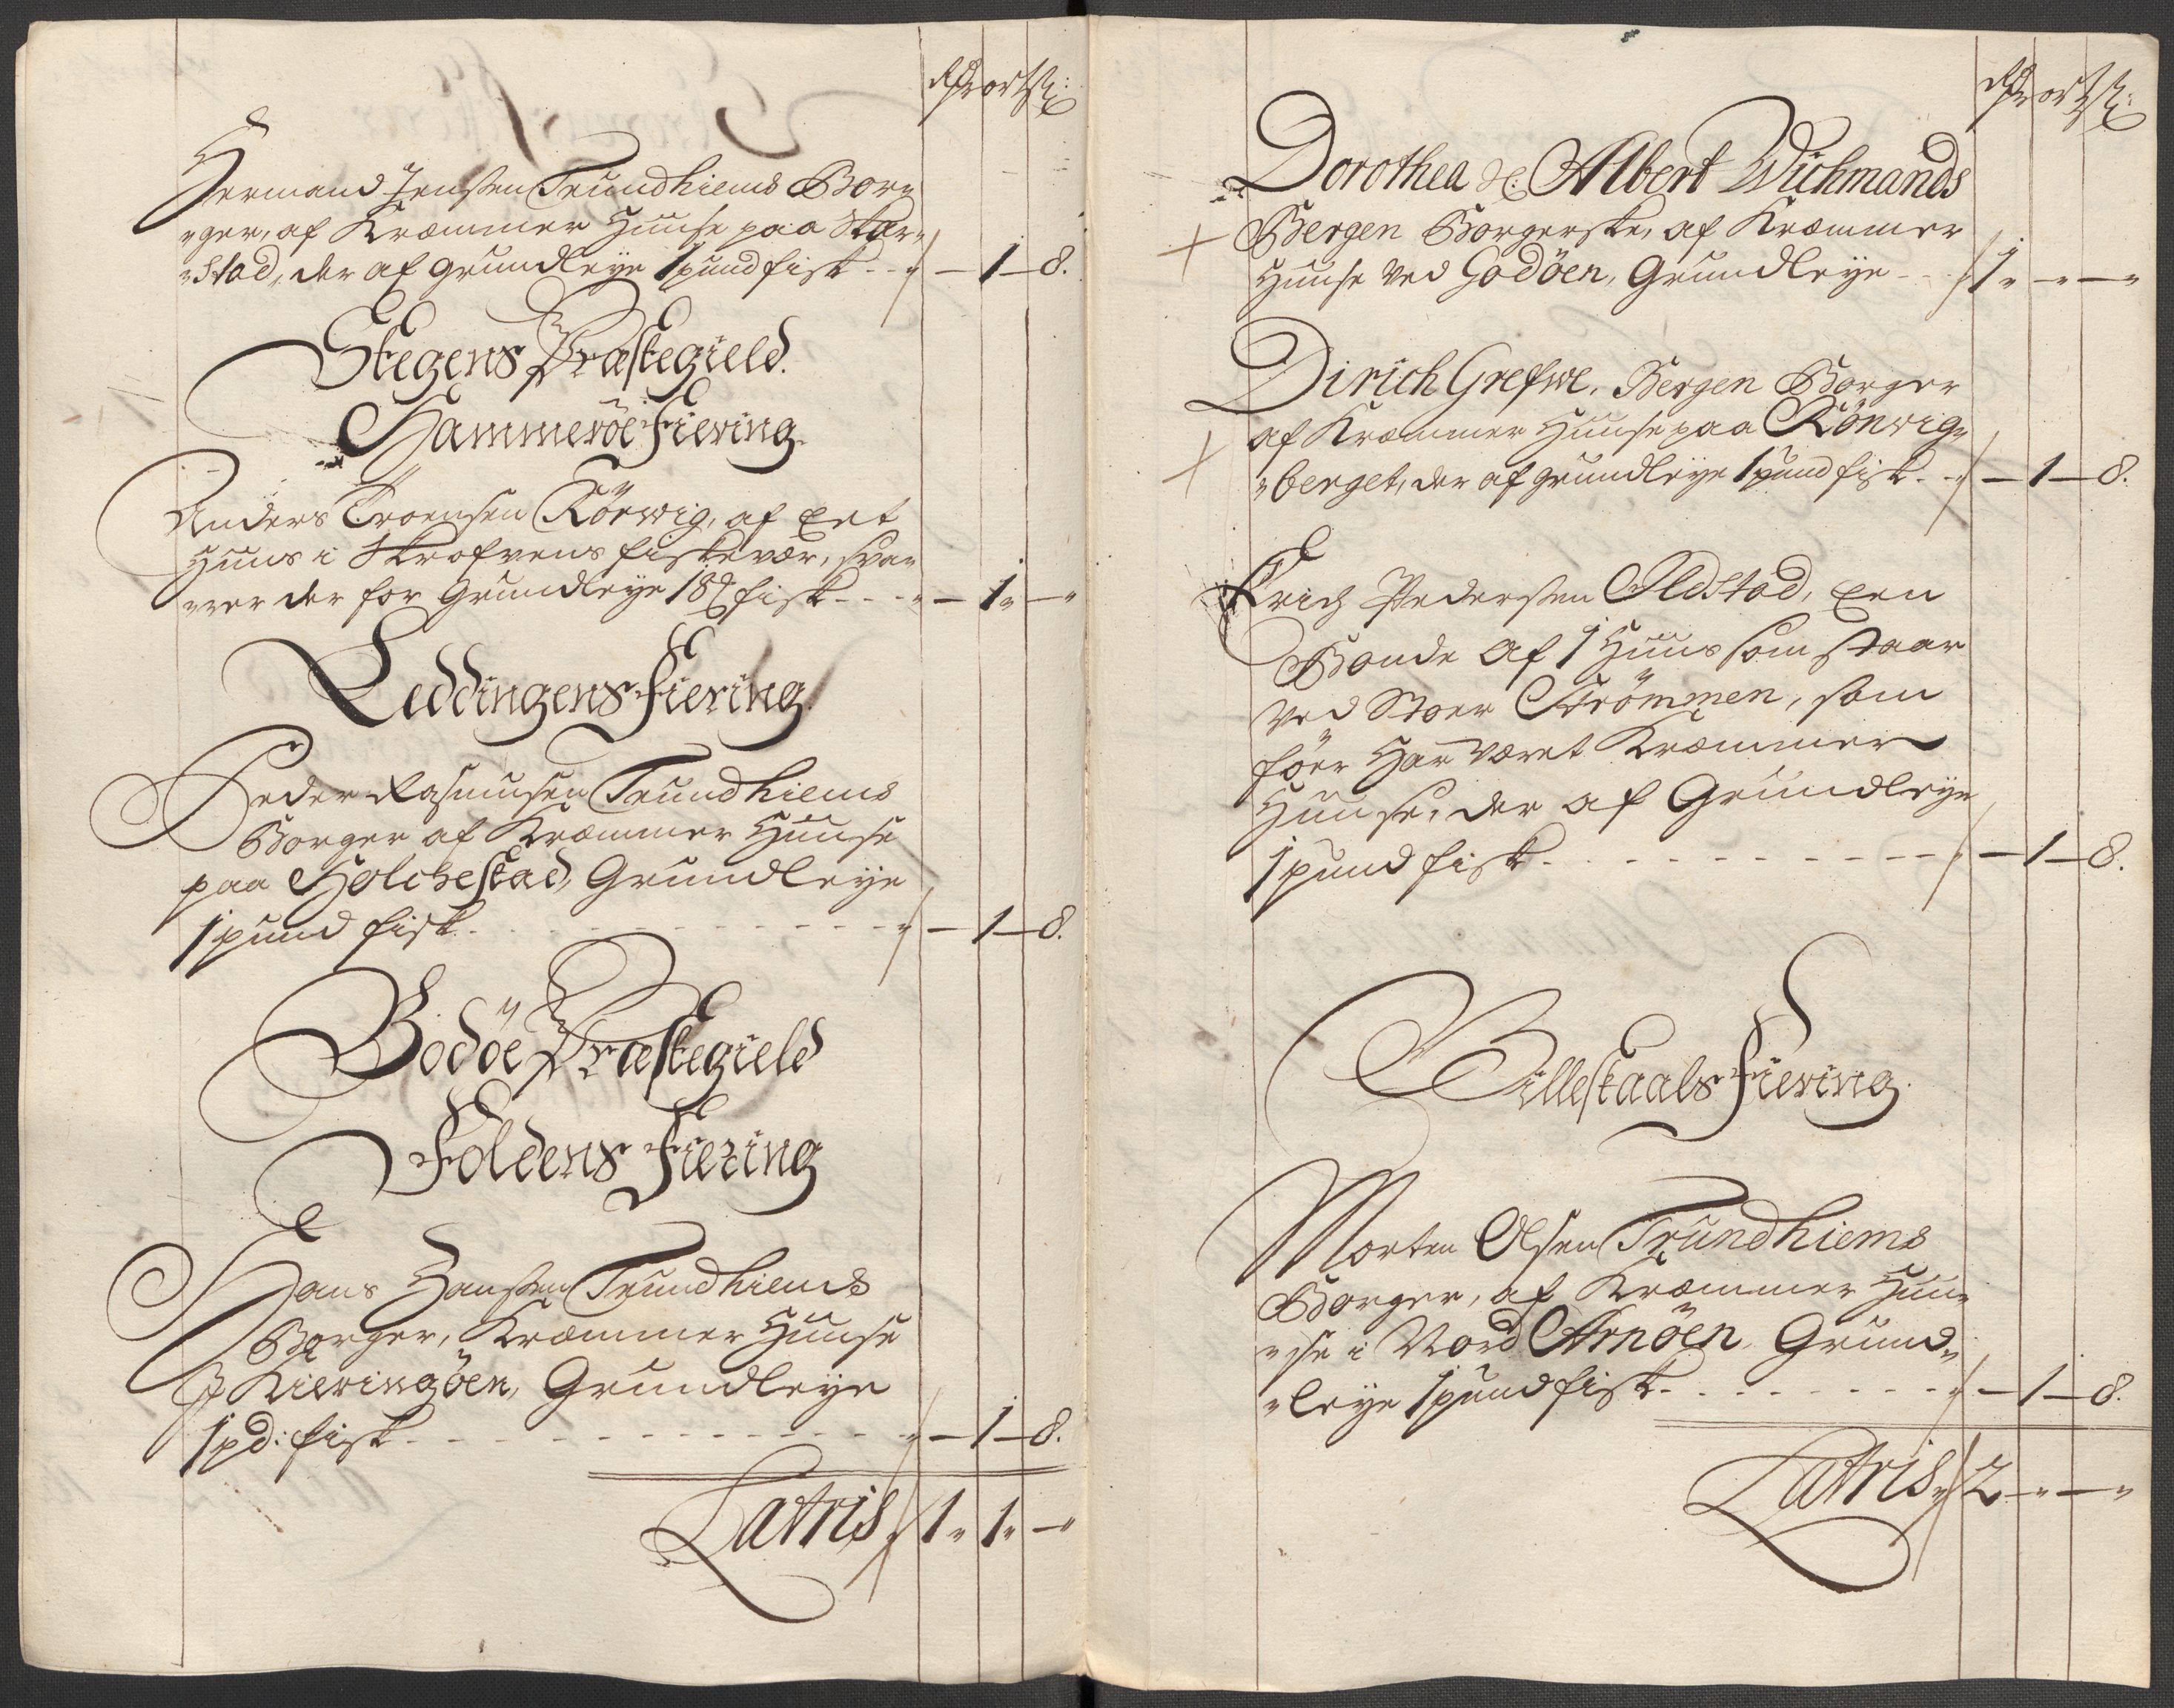 Rdr ort ß:
Hermand Jenssen Trundhiems Bor¬
„ger, af Kræmmer Huuse paa Skar¬
„stad, der af grundleye 1 pund fisk - - „ — 1 — 8.
Stegens Præstegield.
Hammeröe Fiering.
Anders Troensen Körwig, af Eet
Huus i Skrofvens fiskevær, sva¬
„rer der for Grundleye 18 ℔ fisk - - - „ — 1 „ — „
Læddingens Fiering.
Peder Rasmusen Trundhiems
Borger af Kræmmer Huuse
paa Holchestad, Grundleye
1 pund fisk - - - - „ — 1 — 8.
Bodöe Præstegield
Foldens Fiering
Hans Hanssen Trundhiems
Borger, Kræmmer Huuse
J Kieringöen, Grundleye
1 pd: fisk - - - - „ — 1 — 8.
Latris „ 1 „ 1 „ — „
Rdr ort ß:
Dorothea Albert Wichmands
Bergen Borgerske, af Kræmmer
Huuse ved Godöen, Grundleye - - 1 „ — „ — „
Dirich Grefwe, Bergen Borger
af Kræmmer Huuse paa Rönwig„
„berget, der af grundleye 1 pund fisk - - „ — 1 — 8.
Erich Pedersen Ildstad, Een
Bonde af 1 Huus som staar
ved Stoer Strömmen, som
föer Har været Kræmmer
Huuse, der af Grundleye
1 pund fisk - - - - „ — 1 — 8.
Billestaals Fiering.
Morten Olsen Trundhiems
Borger, af Kræmmer Huu„
„se i Nord Arnöen, Grund„
„leye 1 pund fisk - - - - „ — 1 — 8.
Latris „ 2 „ — „ — „